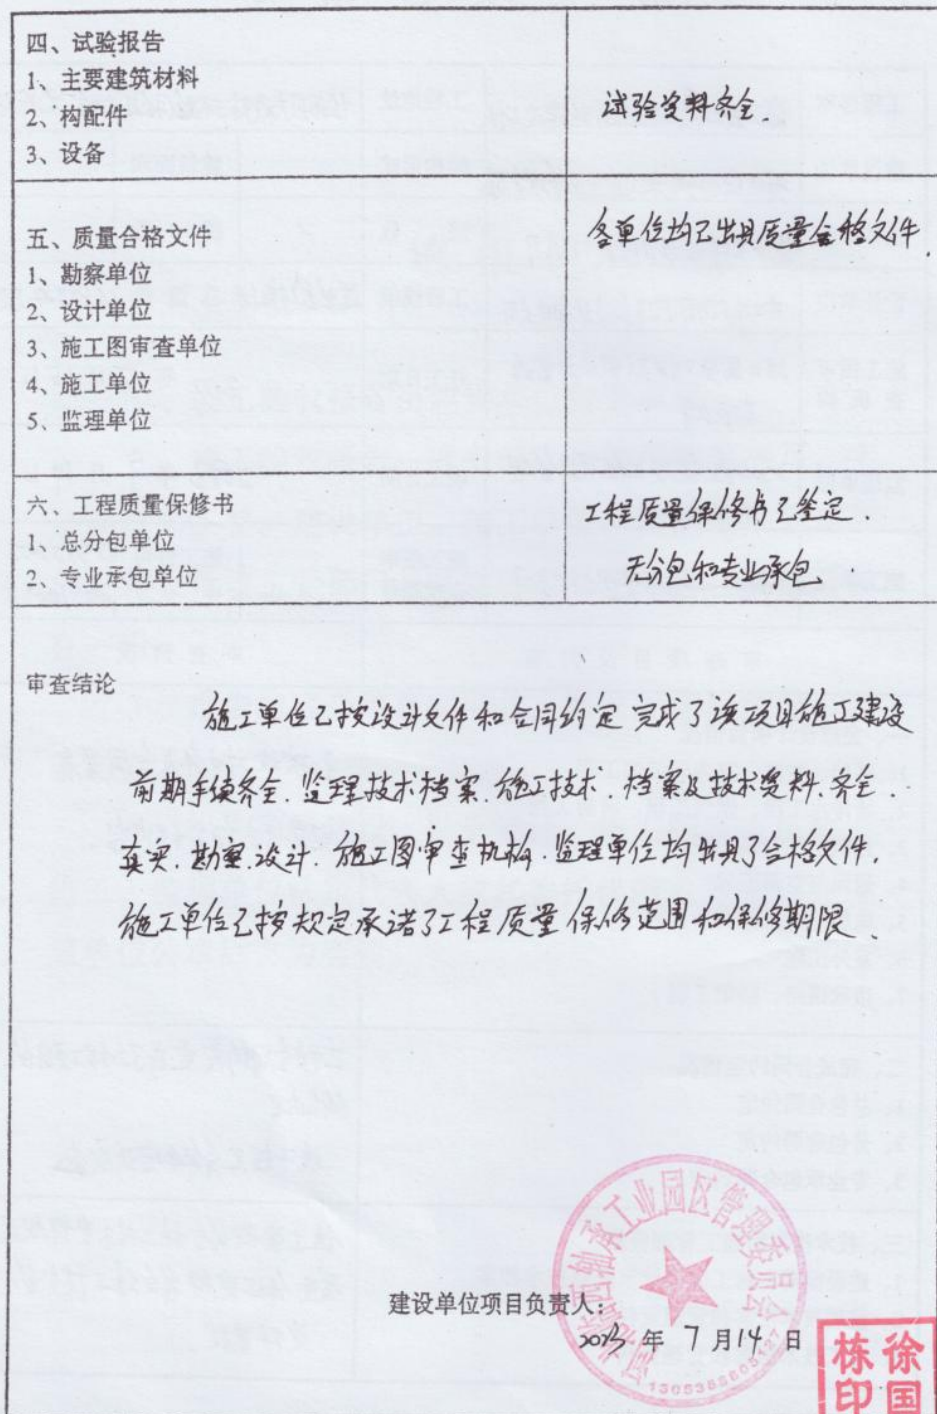 四、试验报告
1、主要建筑材料
2、构配件
3、设备
试验资料齐全.
五、质量合格文件
1、勘察单位
2、设计单位
3、施工图审查单位
4、施工单位
5、监理单位
各单位均已出具质量合格文件.
六、工程质量保修书
1、总分包单位
2、专业承包单位
工程质量保修书已签定.
无分包和专业承包.
审查结论
施工单位已按设计文件和合同约定完成了该项目施工建设
前期手续齐全.监理技术档案.施工技术.档案及技术资料.齐全.
真实.勘察.设计.施工图审查机构.监理单位均出具了合格文件.
施工单位已按规定承诺了工程质量保修范围和保修期限.
建设单位项目负责人:
2023 年 7 月 14 日
西轴承工业园区管理委员会
徐国
栋印